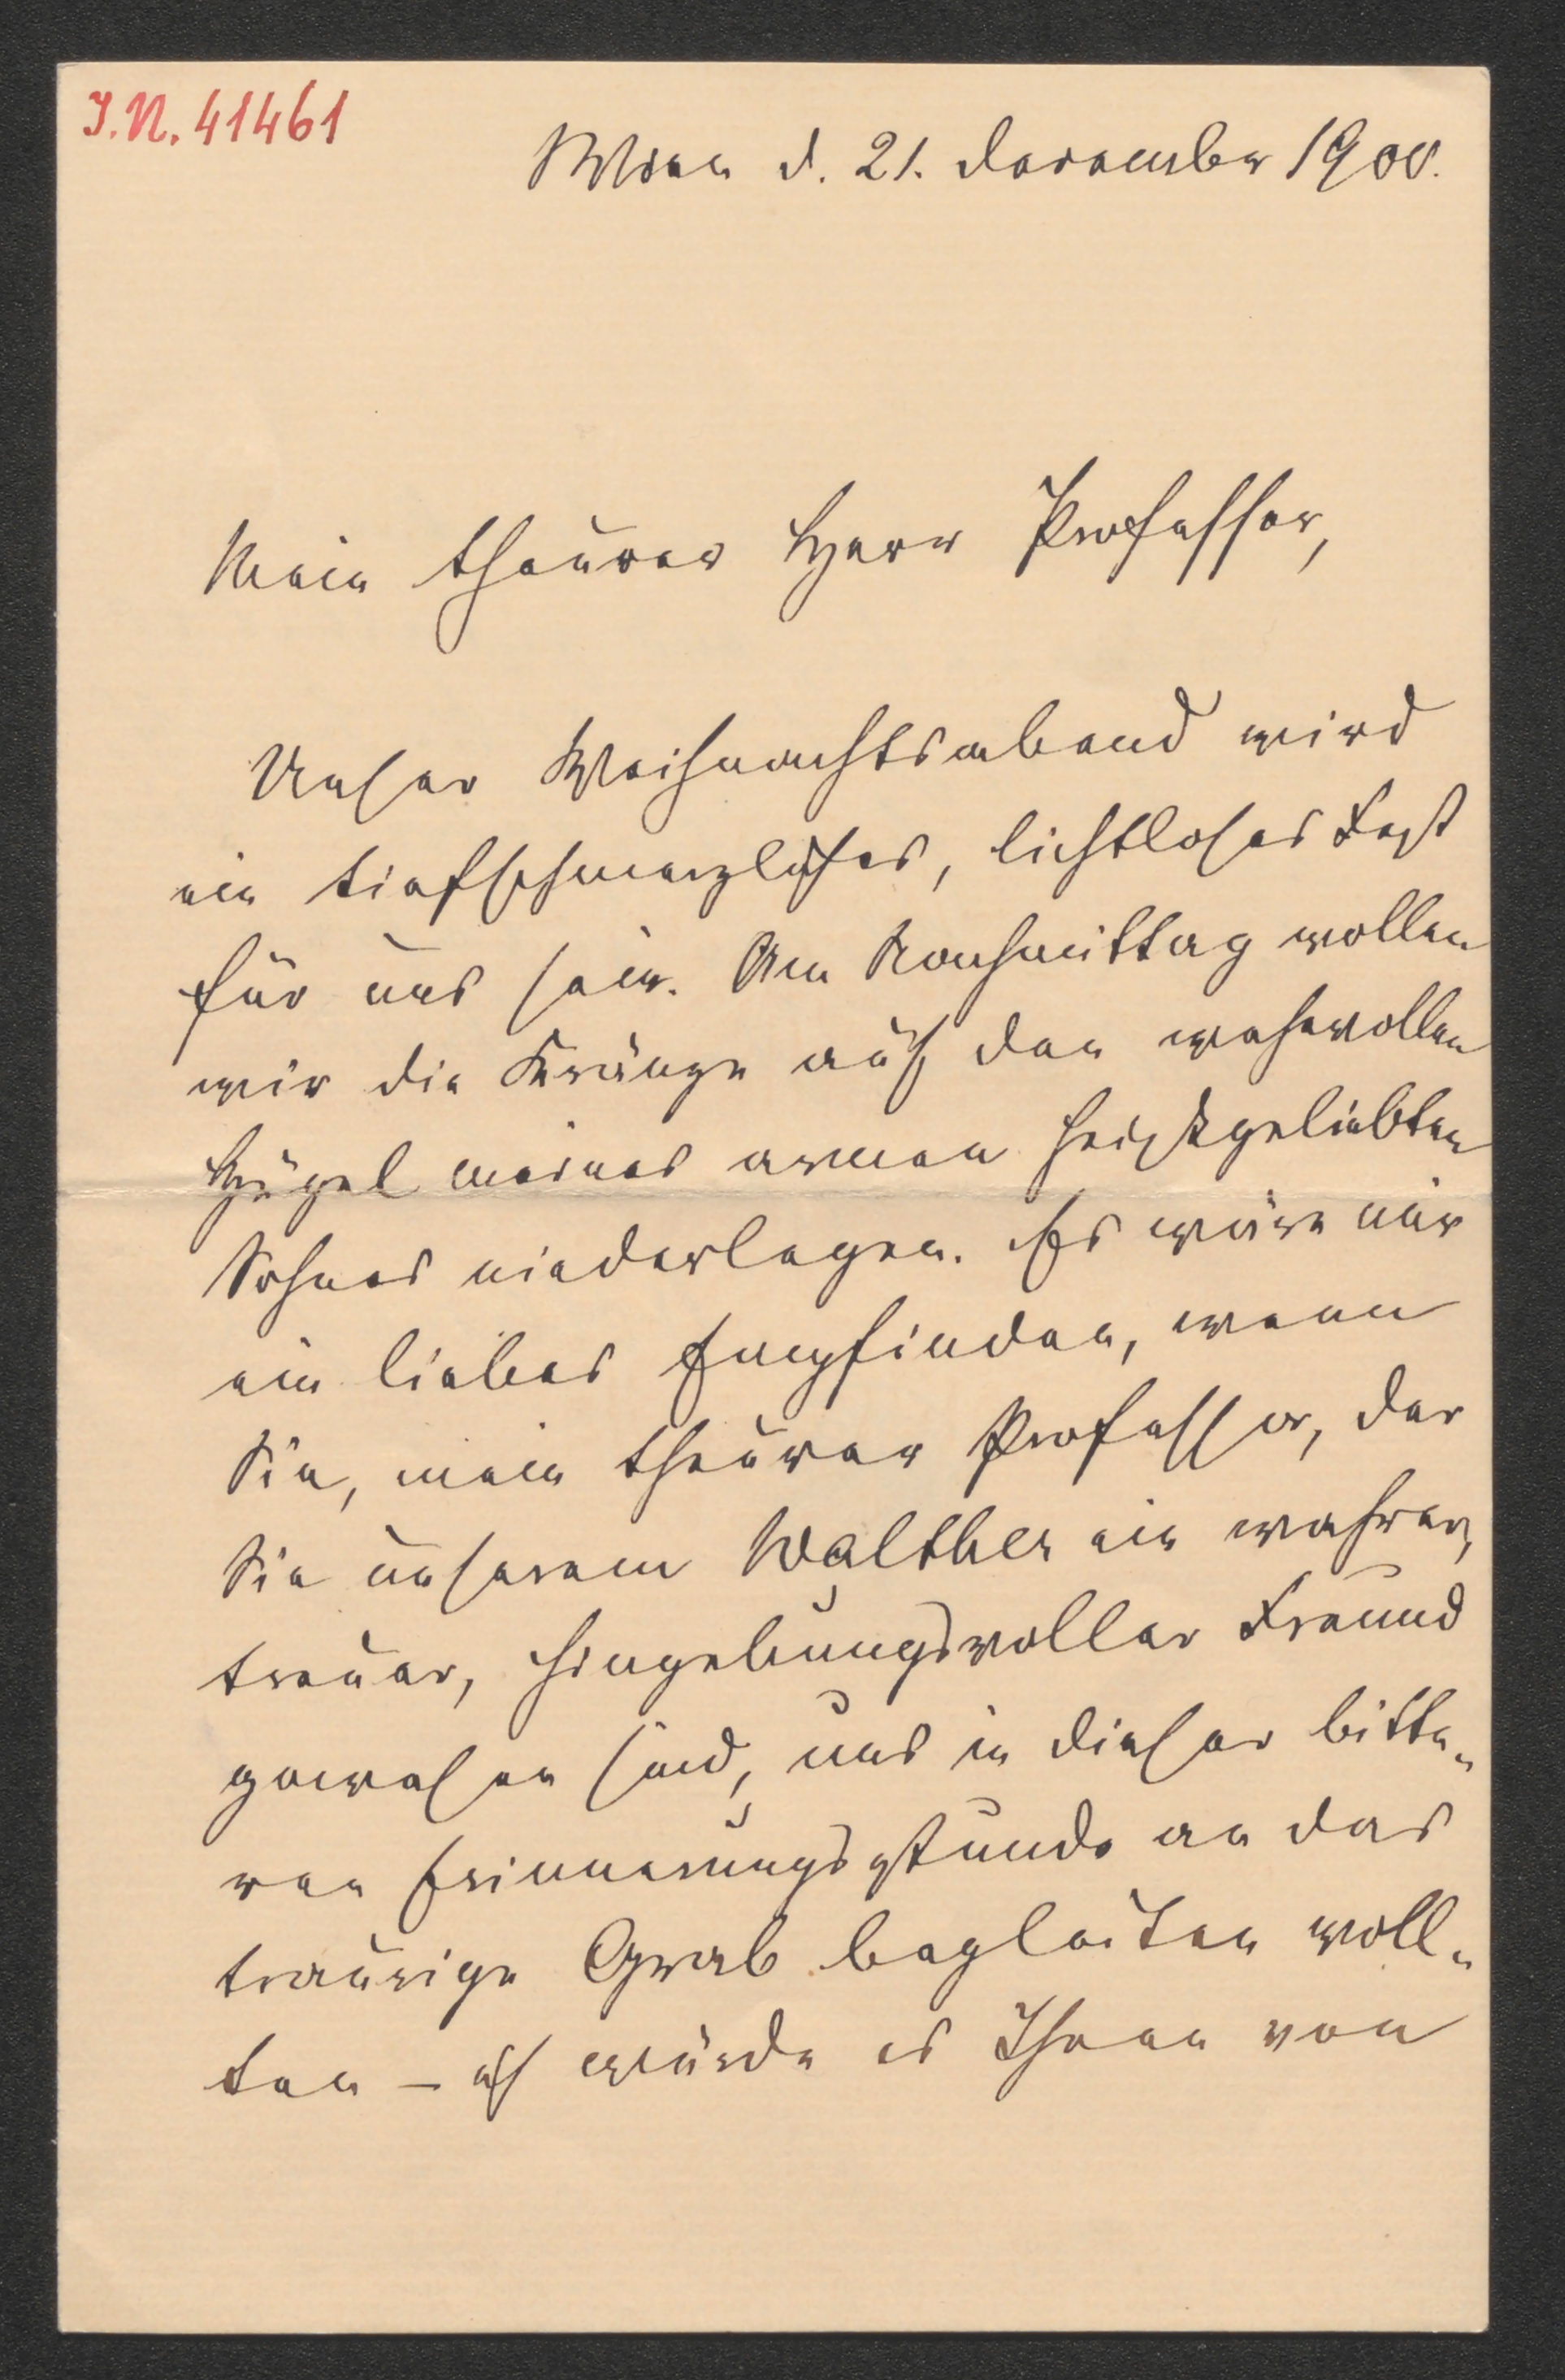 I.N. 41461
Wien d. 21. December 1900.
Mein theurer Herr Professor,
Unser Weihnachtsabend wird
ein tiefschmerzliches, lichtloses Fest
für uns sein. Am Nachmittag wollen
wir die Kränze auf den wehevollen
Hügel meines armen heißgeliebten
Sohnes niederlegen. Es wäre mir
ein liebes Empfinden, wenn
Sie, mein theurer Professor, der
Sie unserem Walther ein wahrer,
treuer, hingebungsvoller Freund
gewesen sind, uns in dieser bitte-
ren Erinnerungsstunde an das
traurige Grab begleiten woll-
ten – ich würde es Ihnen von